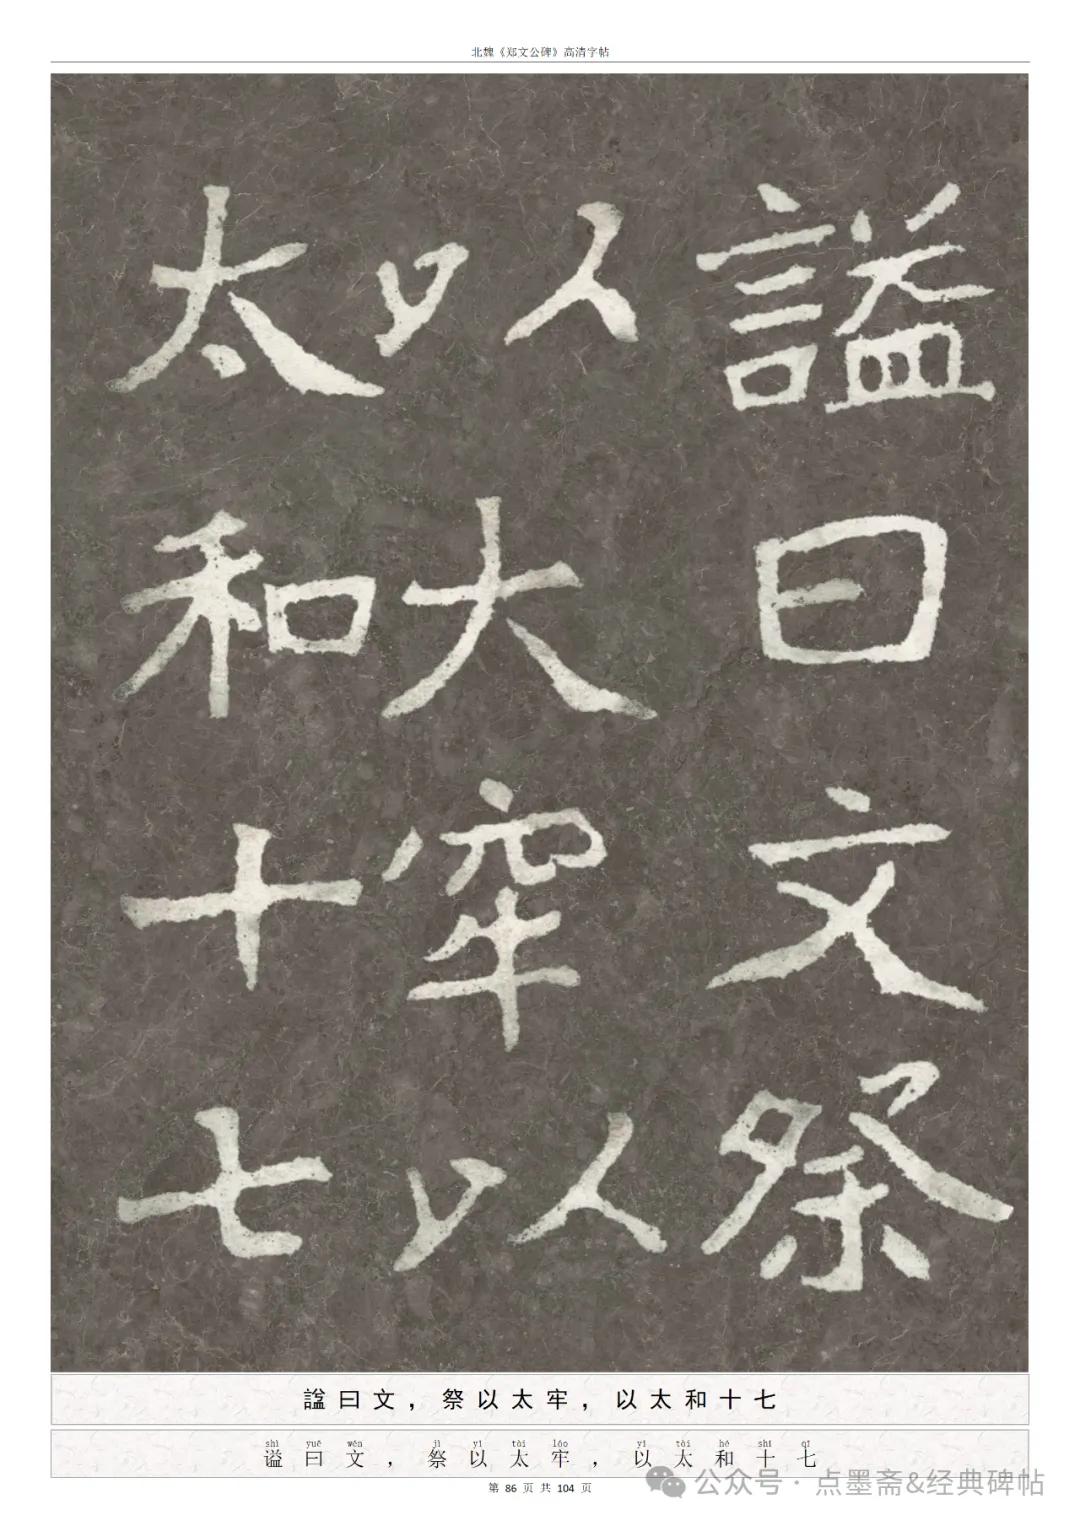 北魏《郑文公碑》高清字帖
謚曰文祭
以大窂以
太和十七
諡曰文，祭以太牢，以太和十七
shì yuē wén jì yǐ tài láo yǐ tài hé shí qī
谥曰文，祭以太牢，以太和十七
第 86 页 共 104 页
公众号 · 点墨斋&经典碑帖